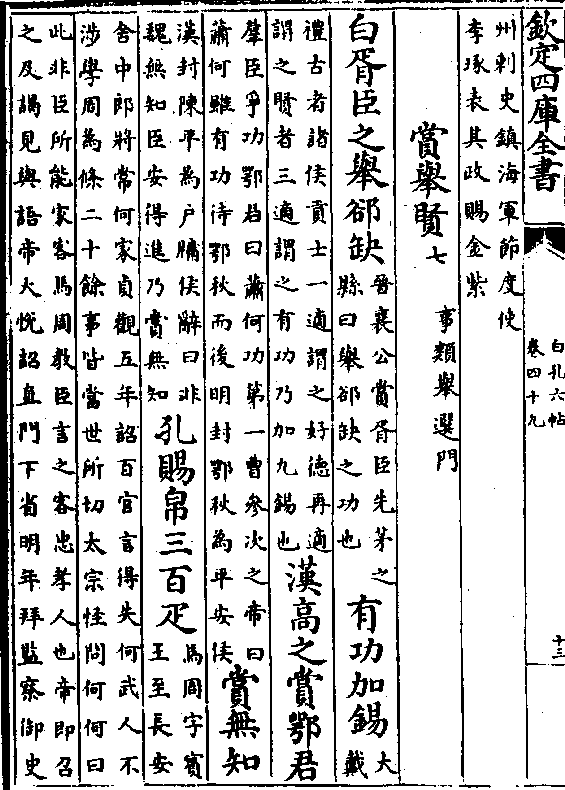 欽定四庫全書
白孔六帖
卷四十九
十三
州刺史鎮海軍節度使
李琢表其政賜金紫
賞舉賢七
事類舉選門
白胥臣之舉郤缺
晉襄公賞胥臣先茅之
縣曰舉郤缺之功也
有功加錫
大戴
禮古者諸侯貢士一適謂之好德再適
謂之賢者三適謂之有功乃加九錫也
漢高之賞鄂君
羣臣爭功鄂君曰蕭何功第一曹參次之帝曰
蕭何雖有功待鄂秋而後明封鄂秋為平安侯
賞無知
漢封陳平為戶牖侯辭曰非
魏無知臣安得進乃賞無知
孔賜帛三百疋
馬周字賓
王至長安
舍中郎將常何家貞觀五年詔百官言得失何武人不
涉學周為條二十餘事皆當世所切太宗怪問何何曰
此非臣所能家客馬周教臣言之客忠孝人也帝即召
之及謁見與語帝大悅詔直門下省明年拜監察御史